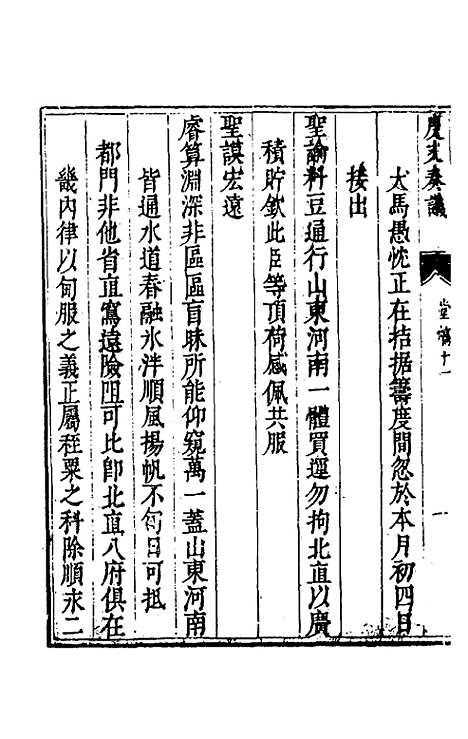 度支奏議
堂稿十一
一
犬馬愚忱正在拮据籌度間忽於本月初四日
接出
聖諭料豆通行山東河南一體買運勿拘北直以廣
積貯欽此臣等頂荷感佩共服
聖謨宏遠
睿算淵深非區區盲昧所能仰窺萬一蓋山東河南
皆通水道春融氷泮順風揚帆不旬日可抵
都門非他省直寫遠險阻可比卽北直八府俱在
畿內律以甸服之義正屬秷粟之科除順永二